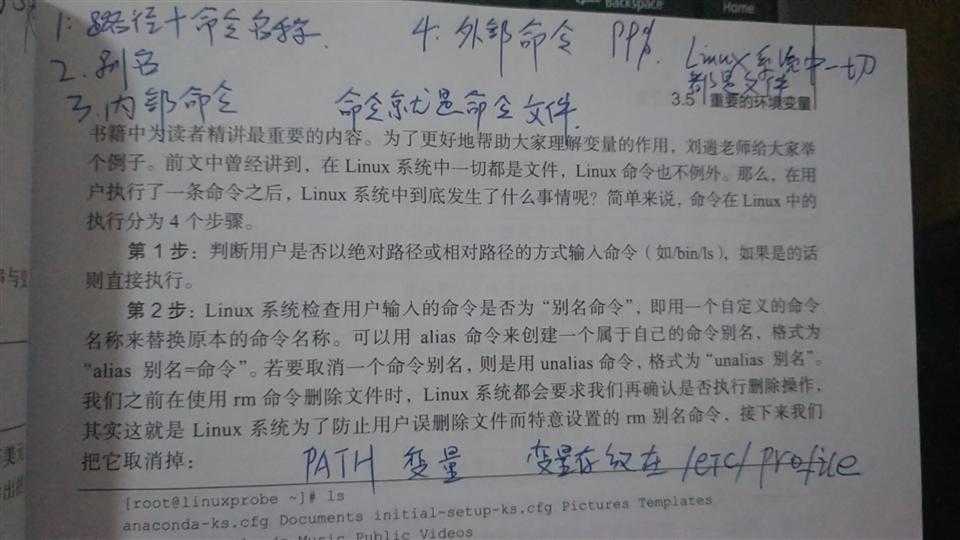 Backspace
Home
1. 路径+命令名称.
4. 外部命令
2. 别名
Linux系统中一切
都是文件
3. 内部命令
命令就是命令文件.
3.5 重要的环境变量
书籍中为读者精讲最重要的内容。为了更好地帮助大家理解变量的作用，刘遄老师给大家举
个例子。前文中曾经讲到，在 Linux 系统中一切都是文件，Linux 命令也不例外。那么，在用
户执行了一条命令之后，Linux 系统中到底发生了什么事情呢？简单来说，命令在 Linux 中的
执行分为 4 个步骤。
第 1 步：判断用户是否以绝对路径或相对路径的方式输入命令（如/bin/ls），如果是的话
则直接执行。
第 2 步：Linux 系统检查用户输入的命令是否为“别名命令”，即用一个自定义的命令
名称来替换原本的命令名称。可以用 alias 命令来创建一个属于自己的命令别名，格式为
“alias 别名=命令”。若要取消一个命令别名，则是用 unalias 命令，格式为“unalias 别名”。
我们之前在使用 rm 命令删除文件时，Linux 系统都会要求我们再确认是否执行删除操作，
其实这就是 Linux 系统为了防止用户误删除文件而特意设置的 rm 别名命令，接下来我们
把它取消掉：
PATH 变量 变量存放在 /etc/profile
[root@linuxprobe ~]# ls
anaconda-ks.cfg Documents initial-setup-ks.cfg Pictures Templates
Music Public Videos